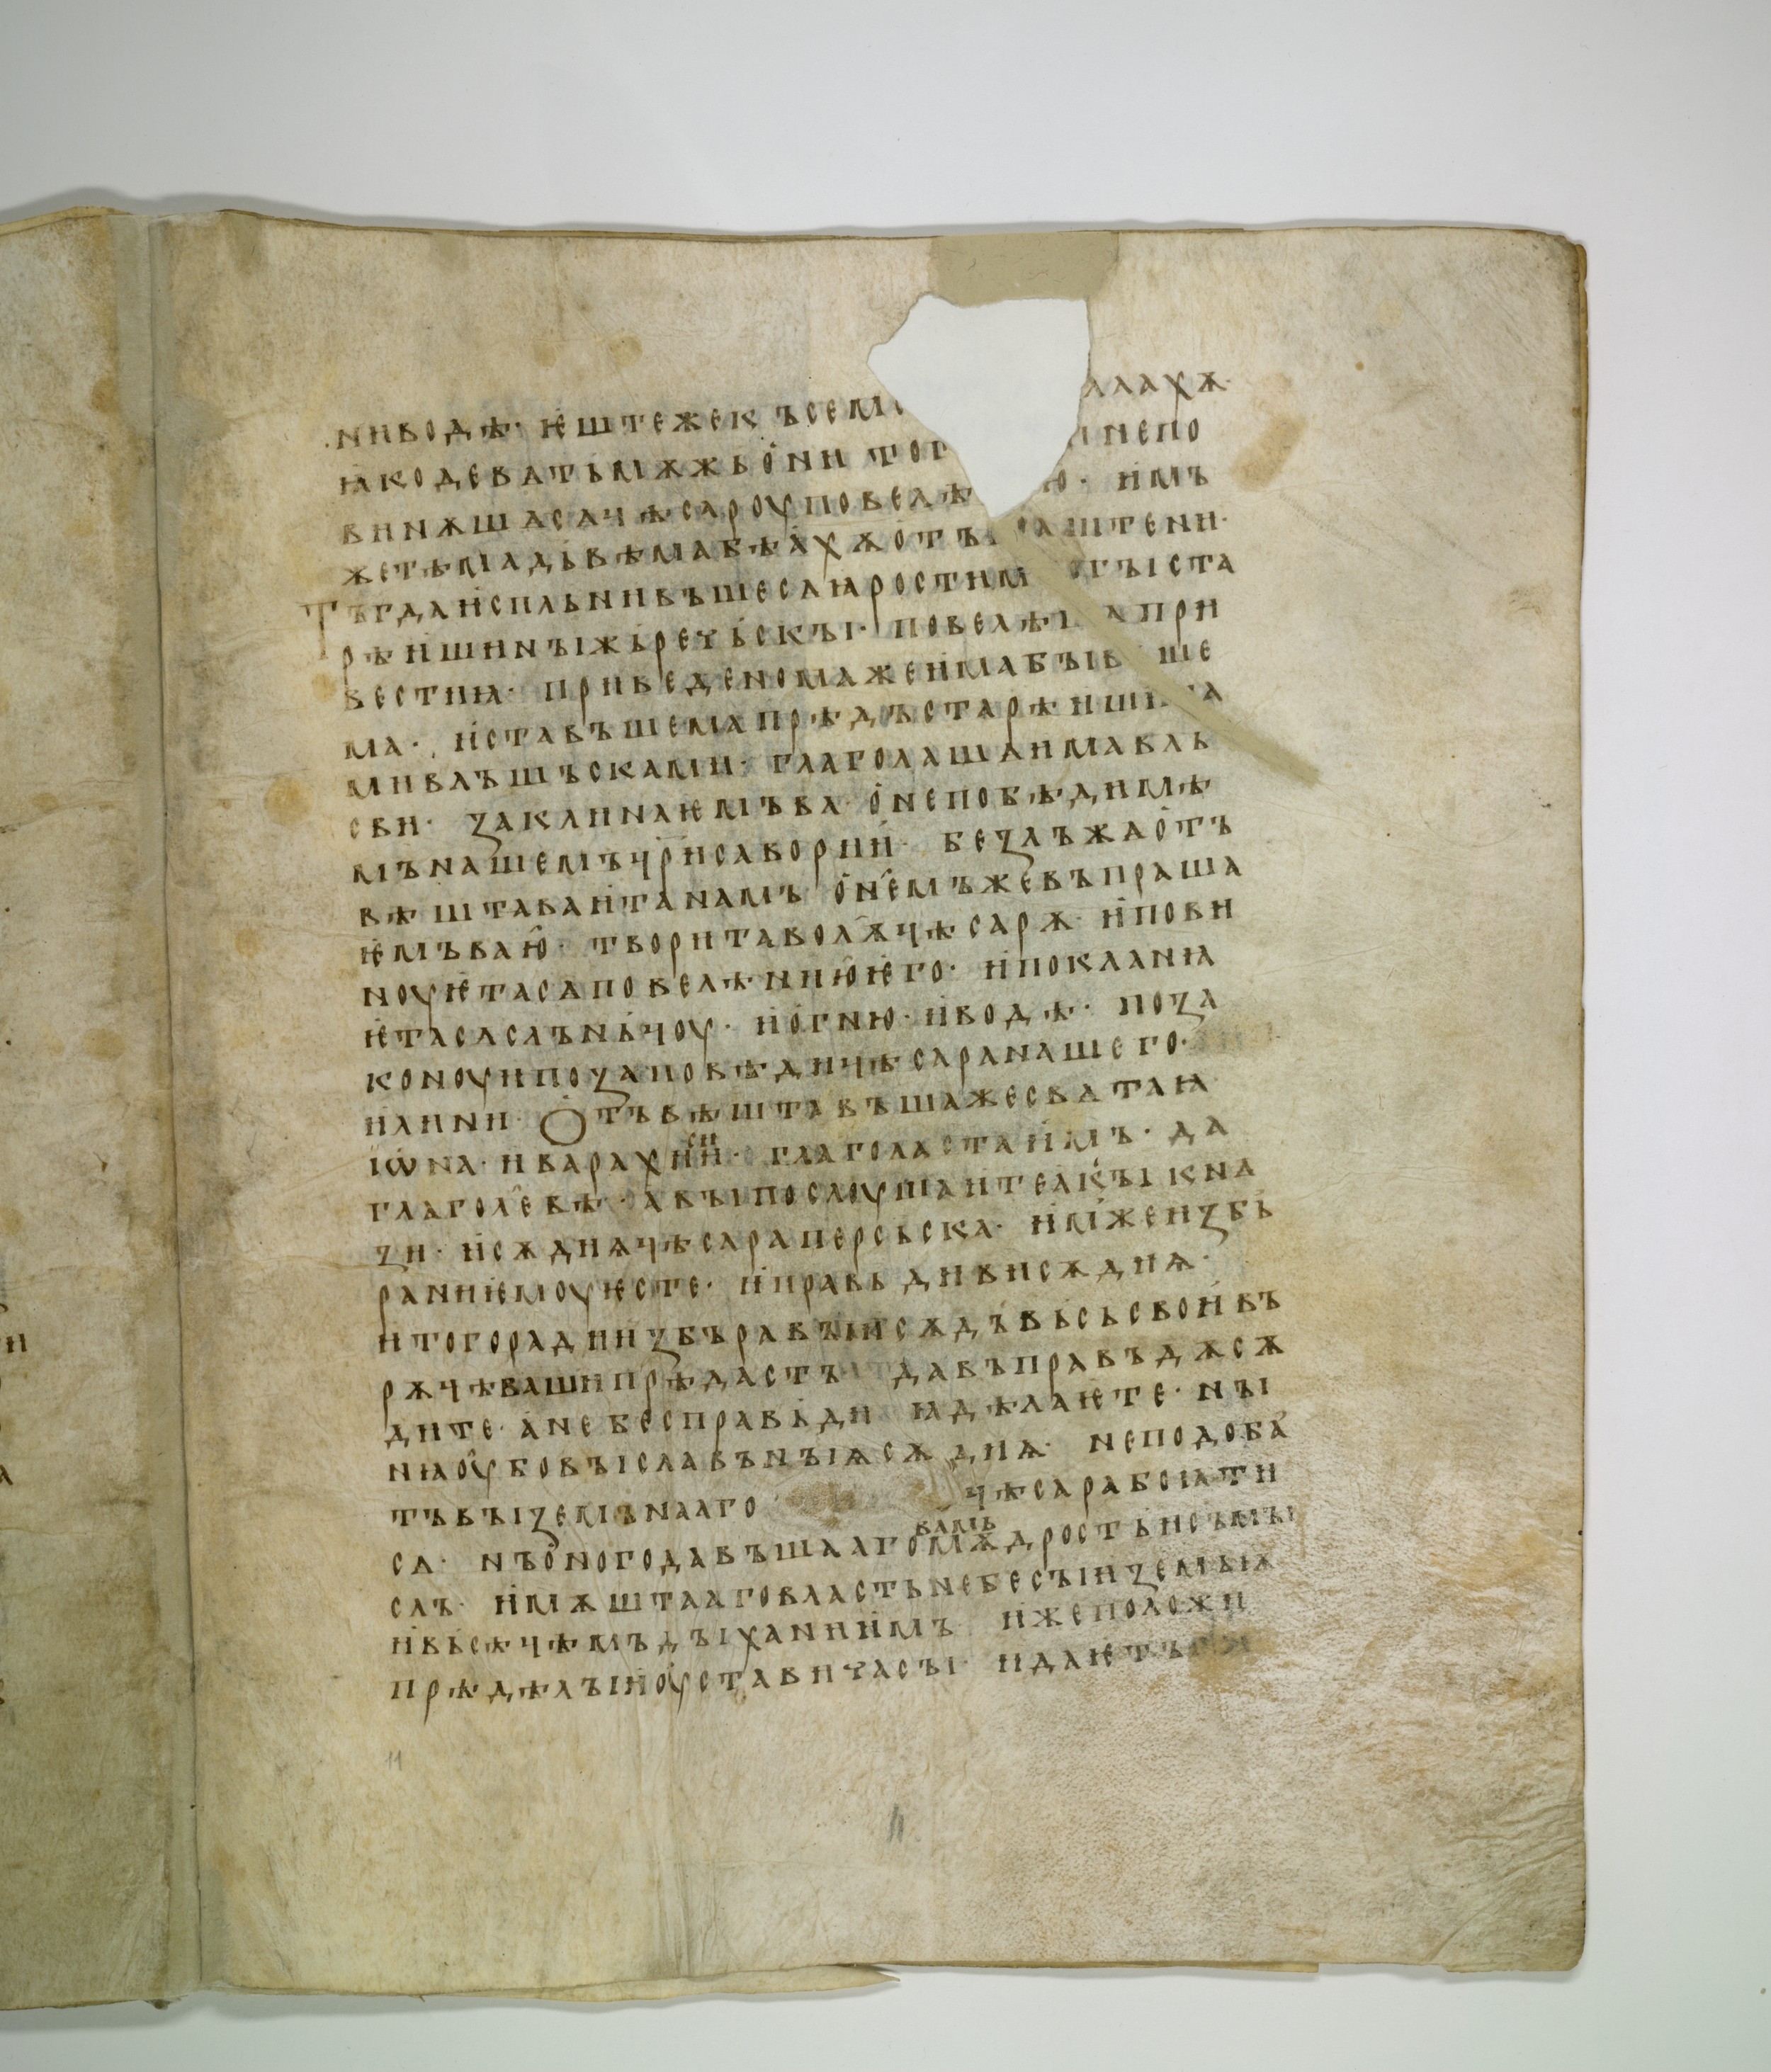 ни водѣ· ѥште же къ сем лаахѫ·
ꙗко девать мѫжь они тог и непо
винѫша сѧ цѣсароу повелѣ ю· имъ
же тѣма дьвѣма бѣахѫ отъ ѧштени·
Тъгда испльнивъше сѧ ꙗростим гы ста
рѣишинꙑ жьречьскꙑ· повелѣ ѧ при
вести ꙗ· приведенома же има бꙑв ше
ма· и ставъшема прѣдъ старѣиши а
ми влъшъсками· глаголашѧ има вль
сви· заклинаѥмъ ва о непобѣдимѣ
мь нашемь чрьи савории· без лъжа отъ
вѣштаваита намъ о немьже въпраша
ѥмъ ваю· творита волѭ цѣсарѫ· и пови
ноуѥта сѧ повелѣнию ѥго· и покланꙗ
ѥта сѧ слъньчоу· и огню· и водѣ· по за
коноу и по заповѣди цѣсара нашего·
или ни· Отъвѣштавъша же свѧтаꙗ
іѡна· и варахисии· глаголаста имъ· да
глаголевѣ· а вꙑ послоушаите лкꙑ кнѧ
зи· и сѫдиѩ цѣсара перьсьска· имьже избь
рании ѥмоу ѥсте· и правьдиви сѫдиѩ·
и того ради избъравꙑи сѫдъ вьсь свои въ
рѫцѣ ваши прѣдастъ да въ правъдѫ сѫ
дите· а не бес правьди ꙗ дѣлаѥте· нꙑ
нꙗ оубо вꙑ славънꙑѩ сѫдиѩ· не подоба
тъ вꙑ земънааго цѣсара боꙗти
сѧ· нъ оного давъшааго вамъ мѫдрость и съмꙑ
слъ· имѫштааго власть небесꙑ и землѩ
и вьсѣчѣмъ дꙑханиимъ иже положи
прѣдѣлꙑ и оустави часꙑ· и даѥтъ
11
11